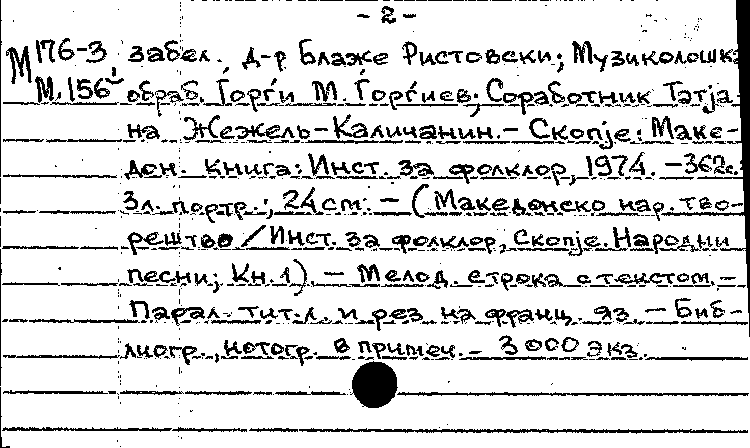 - 2 -
М 176-3 забел., Д-р Блаже Ристовски; Музиколошка
М.156 обраб. Ѓорѓи М. Ѓорѓиев; Соработник Татја-
на Жежељ-Каличанин. - Скопје: Маке-
дон. книга: Инст. за фолклор, 1974. - 362с.:
3л. портр.; 24 cm. - (Македонско нар. тво-
рештво / Инст. за фолклор, Скопје. Народни
песни; Кн. 1). - Мелод. строка с текстом. -
Парал. тит. л. и рез. на франц. яз. - Биб-
лиогр., нотогр. в примеч. - 3000 экз.